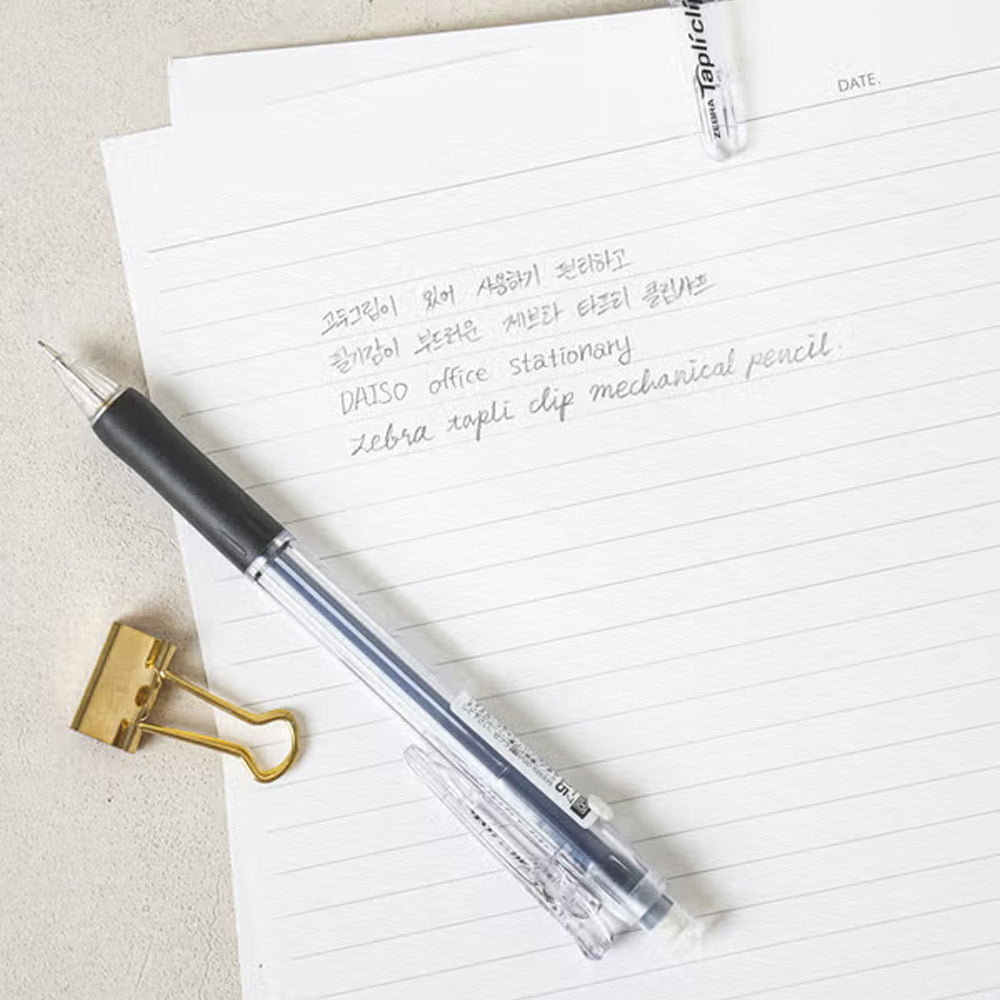 Tapli cli
ZEBRA
DATE.
고무그립이 있어 사용하기 편리하고
필기감이 부드러운 제브라 타프리 클립샤프
DAISO office stationary
zebra tapli clip mechanical pencil.